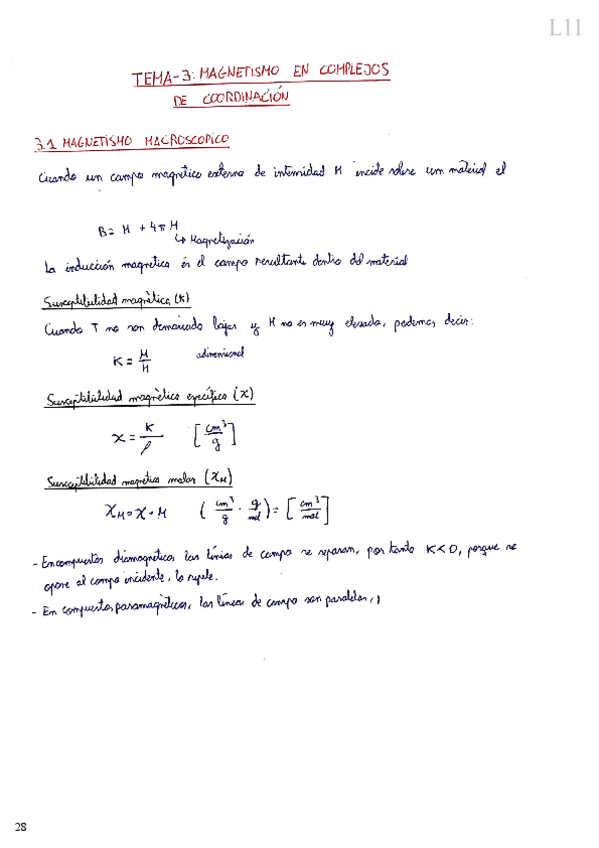 L11
TEMA-3: MAGNETISMO EN COMPLEJOS
DE COORDINACIÓN
3.1 MAGNETISMO MACROSCOPICO
Cuando un campo magnetico externo de intensidad H incide sobre un material el
B = H + 4π M
↳ Magnetización
La inducción magnetica es el campo resultante dentro del material
Susceptibilidad magnética (K)
Cuando T no son demasiado bajas y H no es muy elevado, podemos decir:
K = M/H adimensional
Susceptibilidad magnética específica (χ)
χ = K/ρ [cm³/g]
Susceptibilidad magnetica molar (χM)
χM = χ · M (cm³/g · g/mol) = [cm³/mol]
- En compuestos diamagnéticos, las líneas de campo se separan, por tanto K < 0, porque se
opone al campo incidente, lo repele.
- En compuestos paramagnéticos, las líneas de campo son paralelas,
28